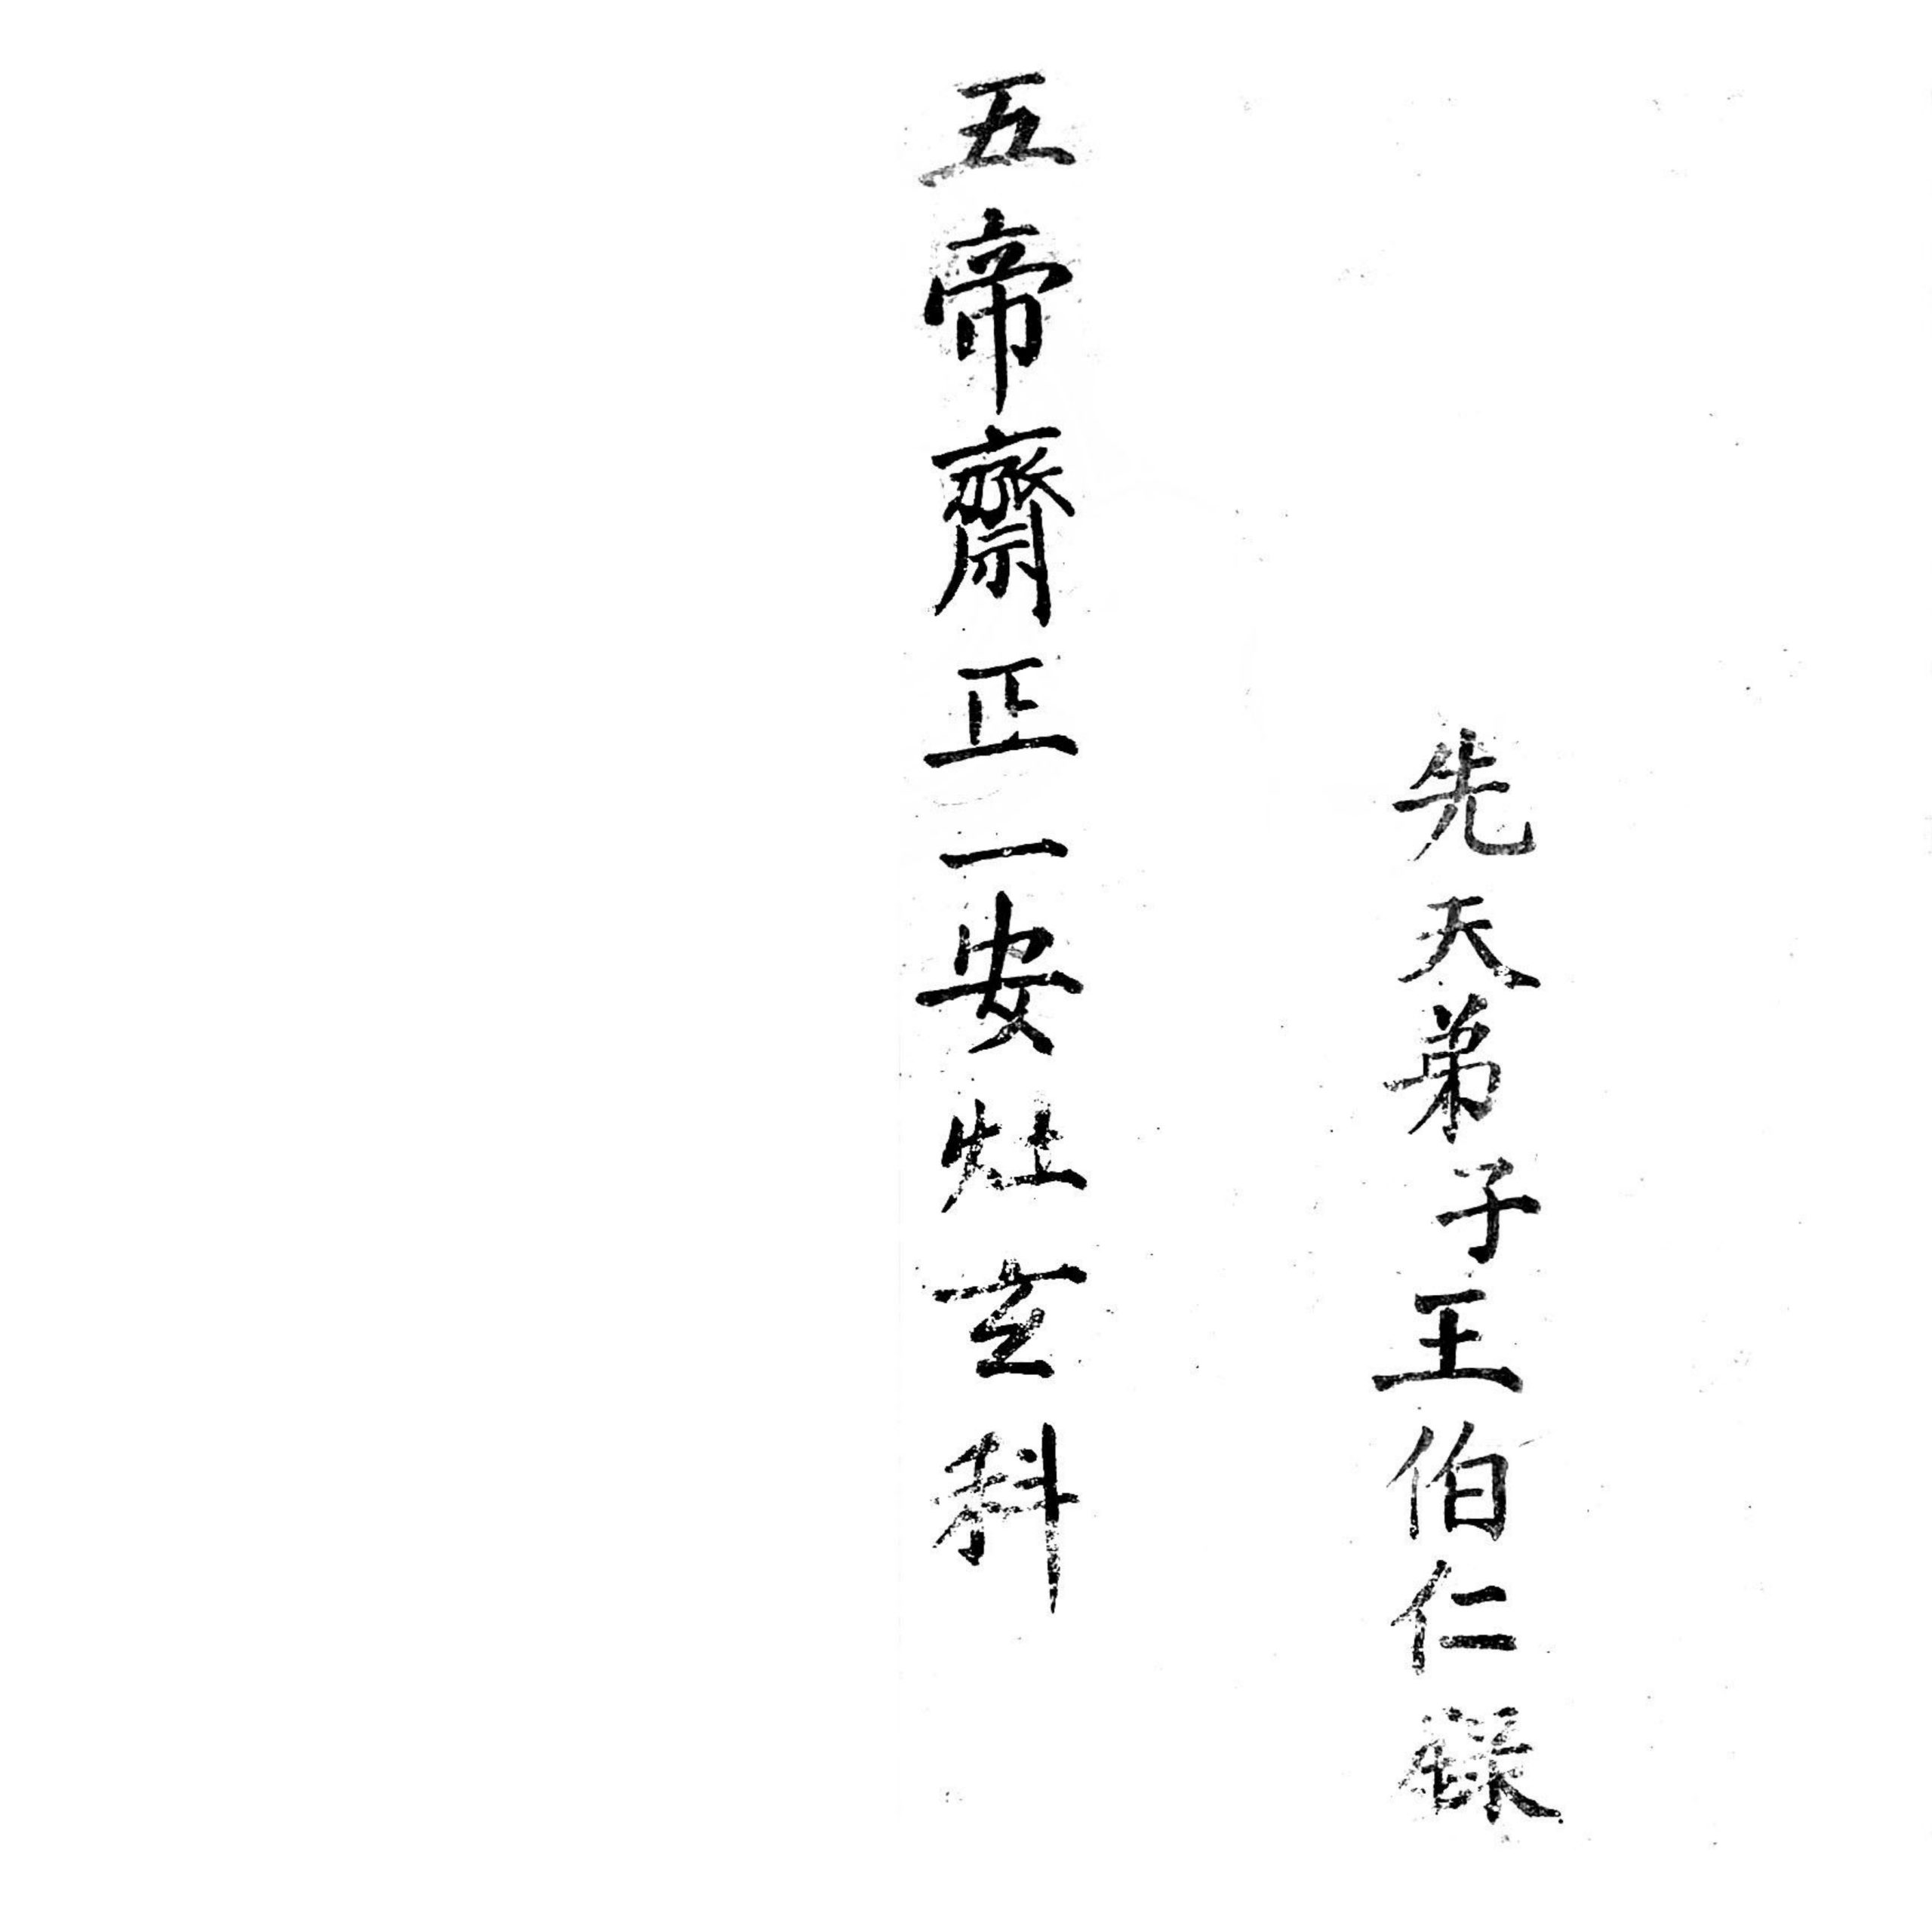 先天弟子王伯仁
五帝齋正一安灶玄科